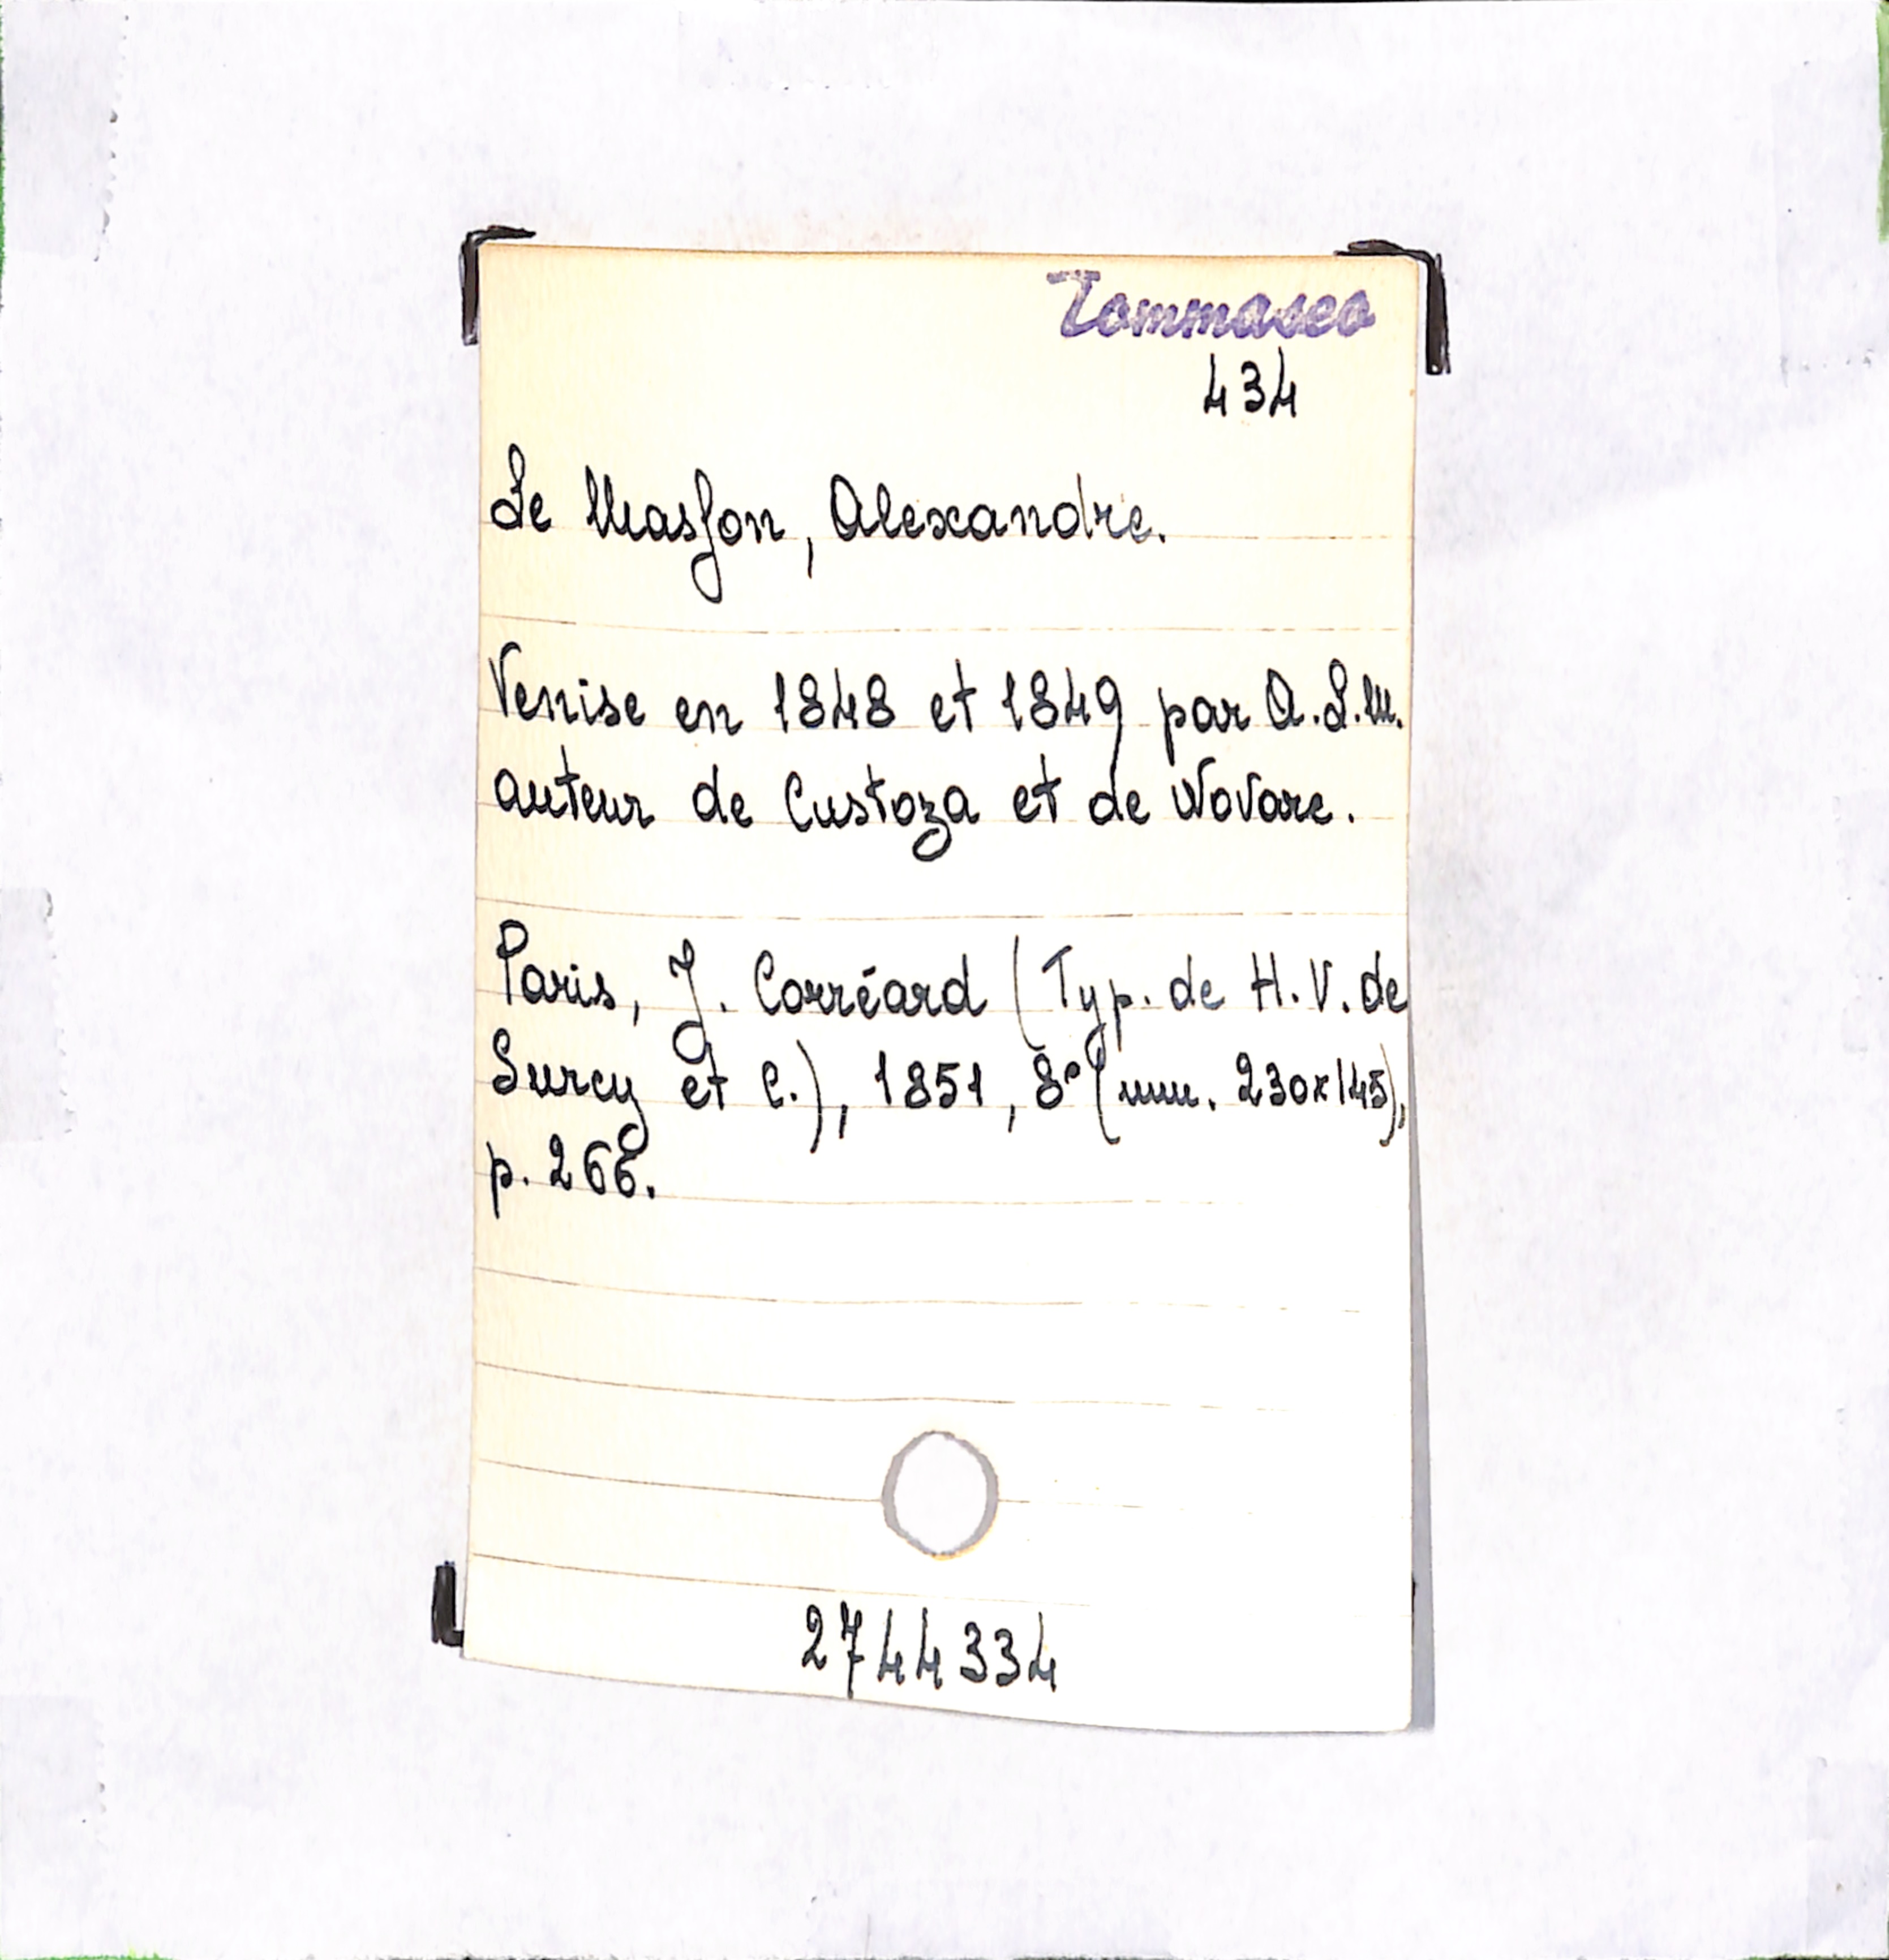 Tommaseo
434
Le Masson, Alexandre.
Venise en 1848 et 1849 par A.L.M.
auteur de Custoza et de Novare.
Paris, J. Corréard (Typ. de H.V. de
Surcy et C.), 1851, 8° (mm. 230x145),
p. 266.
2744334